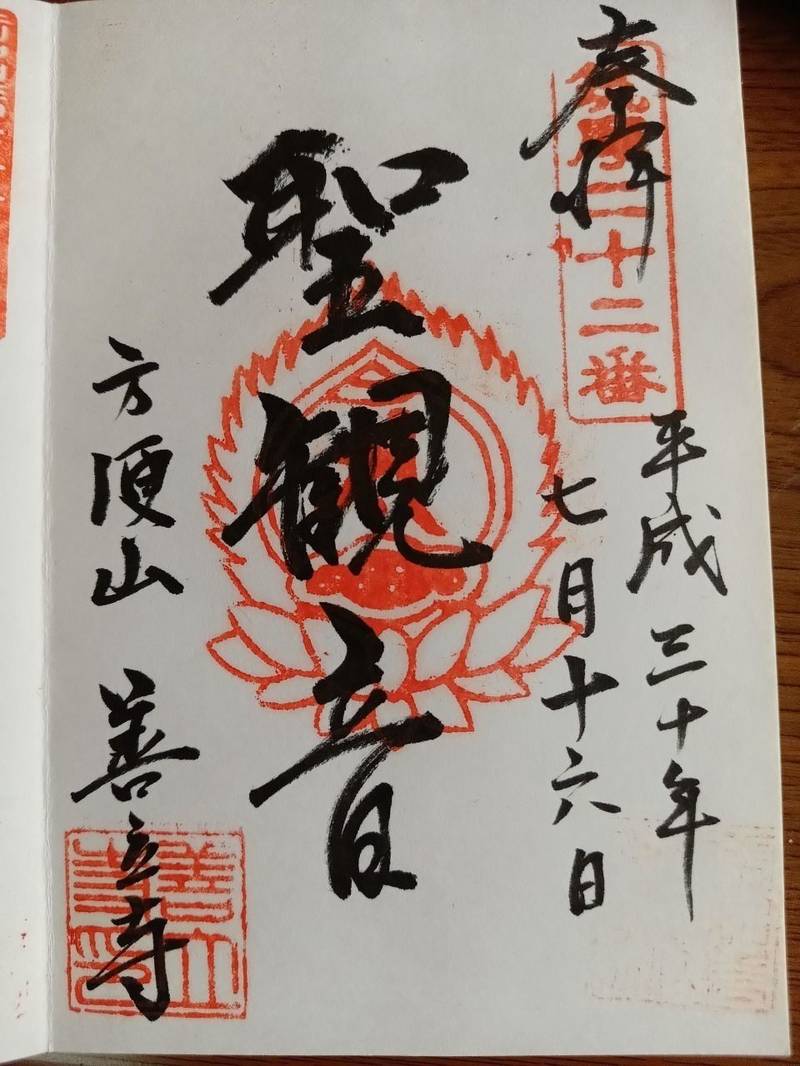 奉拝
二十二番
平成三十年
七月十六日
聖観音
方便山
善立寺
善立
寺印